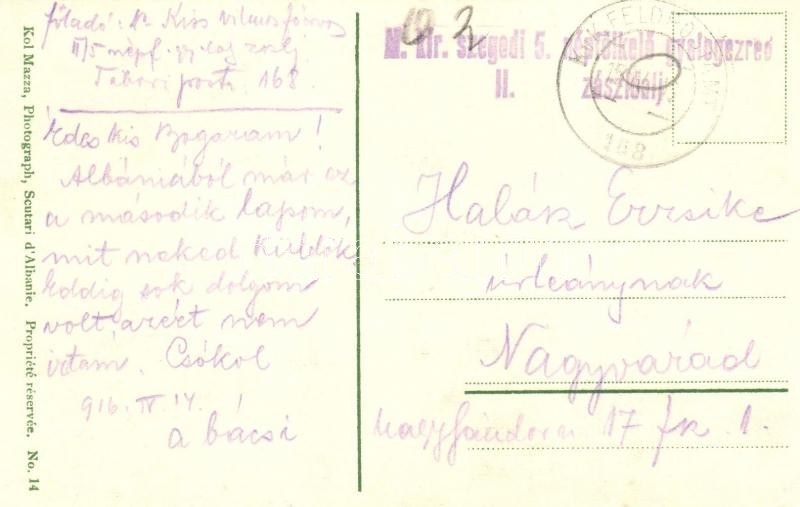 föladó: Dr Kiss Vilmos főorvos
II/5 népf. gy. ezred
Tábori posta 168
Édes kis Bogaram!
Albániából már ez
a második lapom,
mit neked küldök
Eddig sok dolgom
volt azért nem
írtam. Csókol
916. IV. 14.
a bácsi
Kol Mazza, Photograph, Scutari d'Albanie. Propriété réservée. No. 14
M. kir. szegedi 5. népfölkelő gyalogezred
II. zászlóalj
168
Halász Erzsike
úrleánynak
Nagyvárad
17 fsz 1.